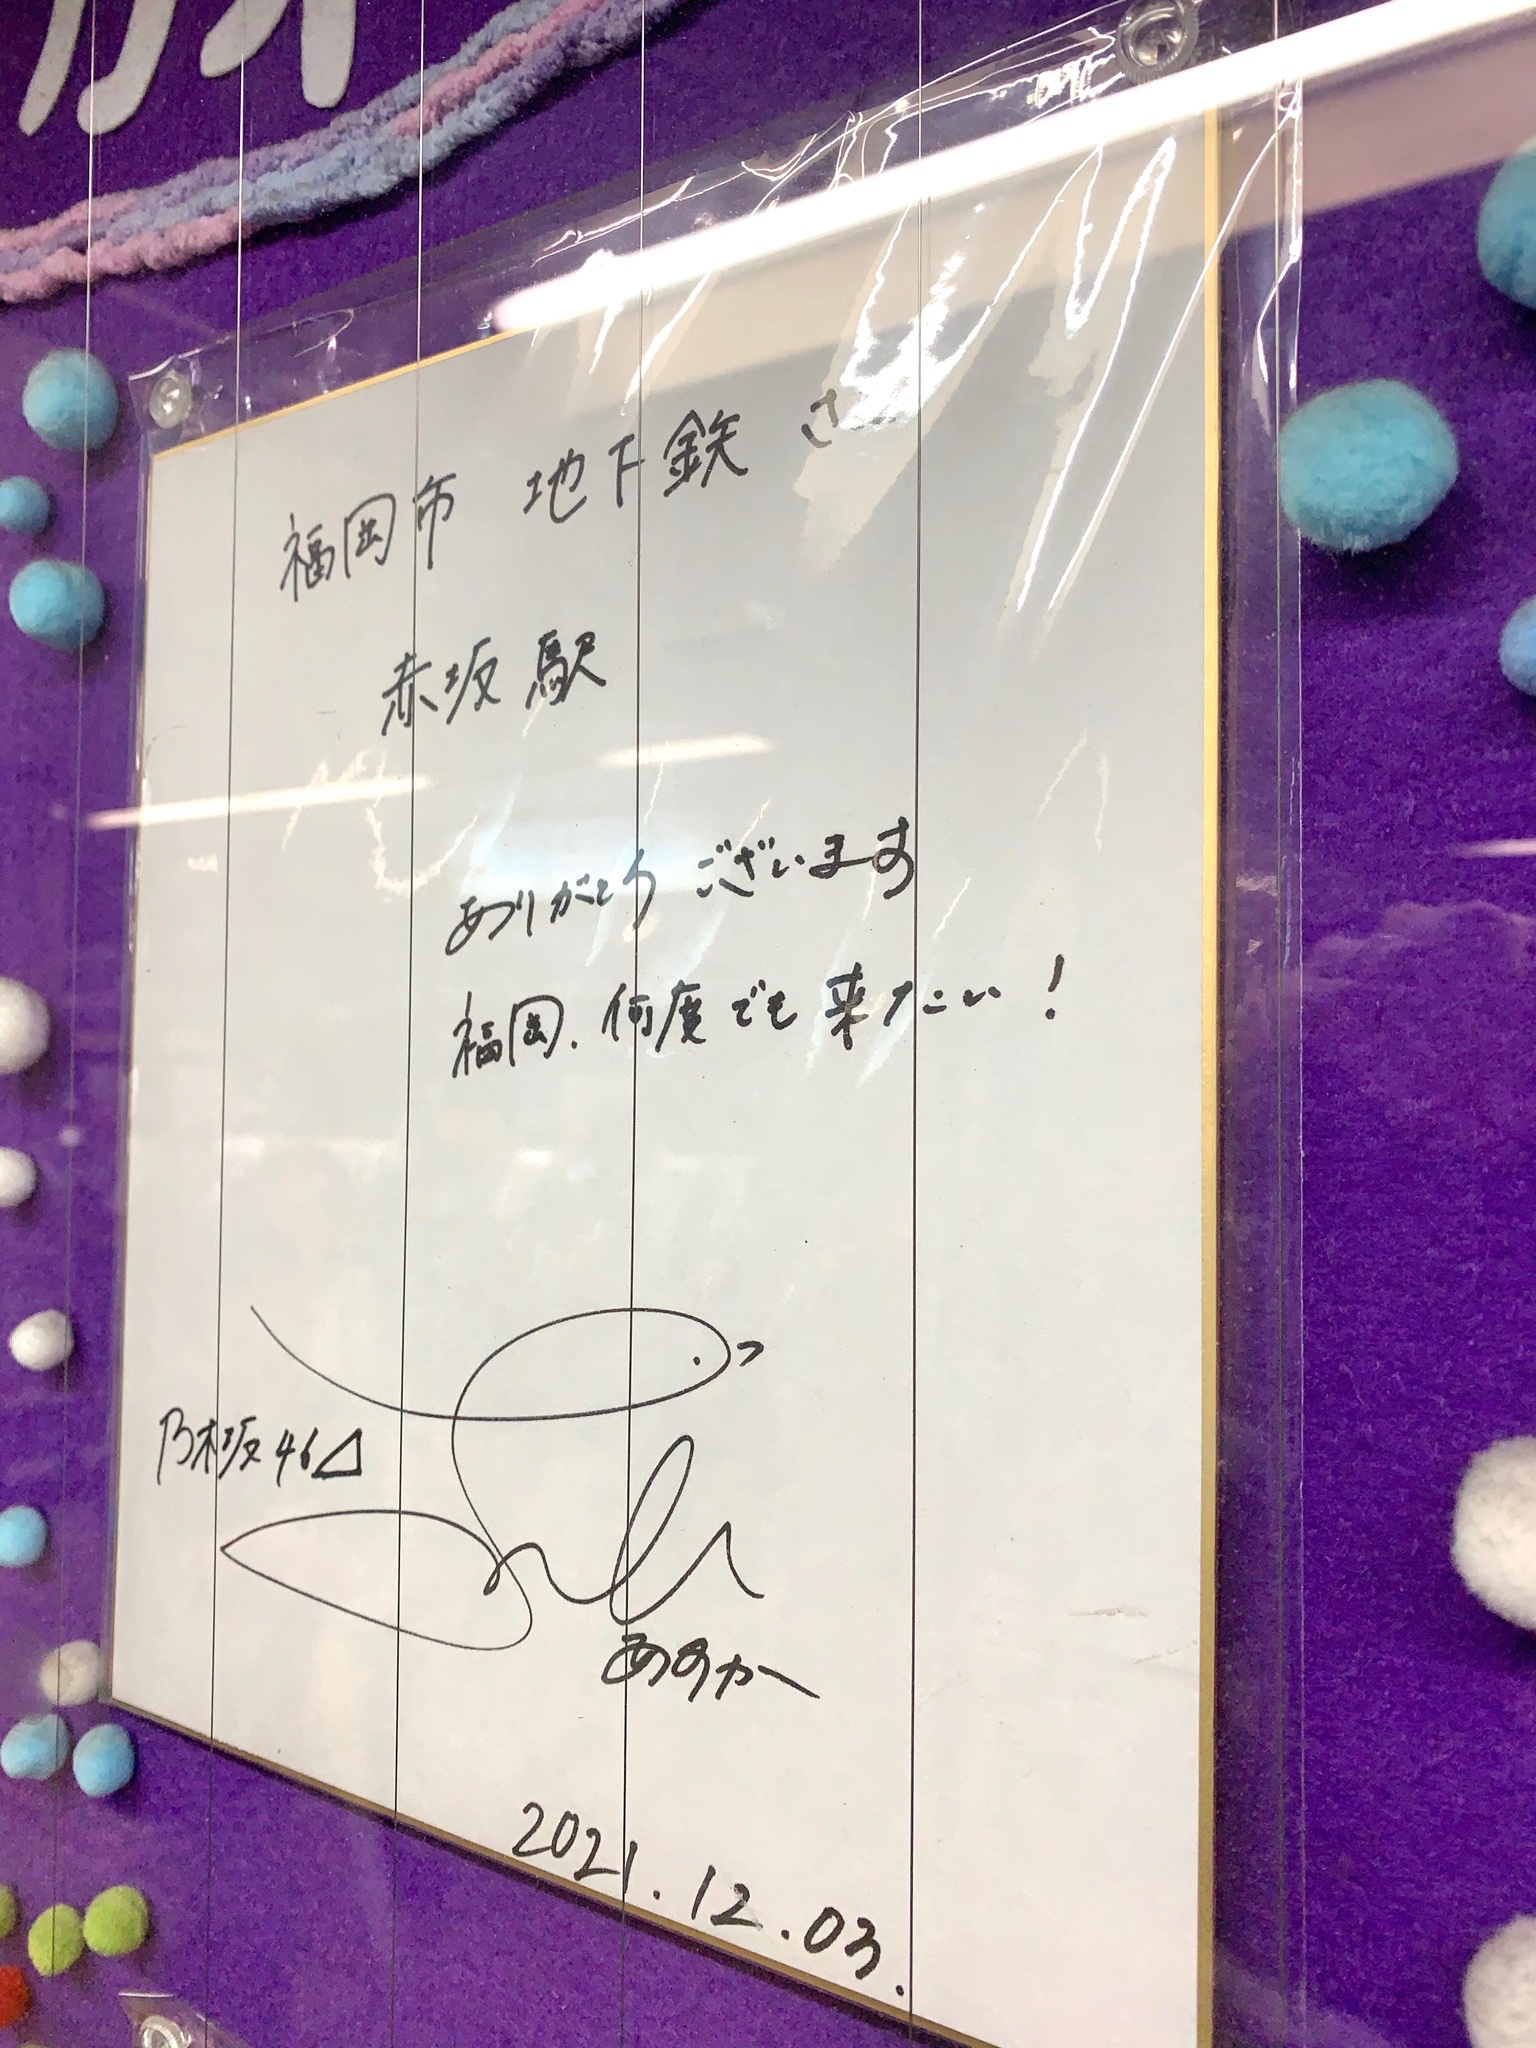 福岡市 地下鉄 さ
赤坂駅
ありがとうございます
福岡、何度でも来たい!
乃木坂46
あすか
2021.12.03.